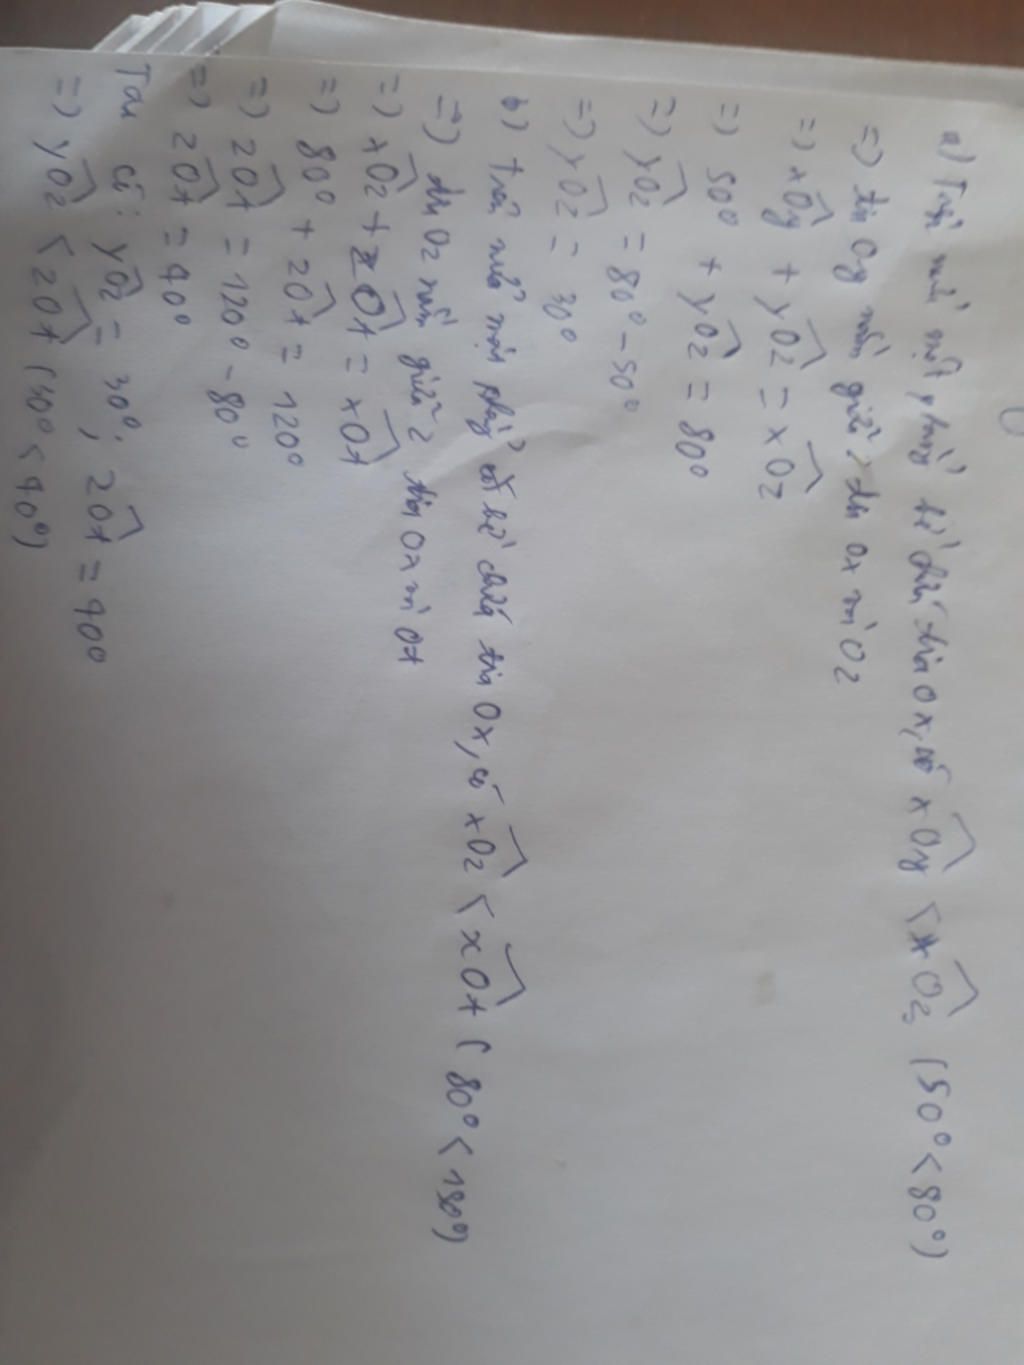 a) Trên nửa mặt phẳng bờ chứa tia Ox, có xOy < xOz (50° < 80°)
=> tia Oy nằm giữa 2 tia Ox và Oz
=> xOy + yOz = xOz
=> 50° + yOz = 80°
=> yOz = 80° - 50°
=> yOz = 30°
b) trên nửa mặt phẳng có bờ chứa tia Ox, có xOz < xOt (80° < 130°)
=> tia Oz nằm giữa 2 tia Ox và Ot
=> xOz + zOt = xOt
=> 80° + zOt = 120°
=> zOt = 120° - 80°
=> zOt = 40°
Ta có: yOz = 30°; zOt = 40°
=> yOz < zOt (30° < 40°)